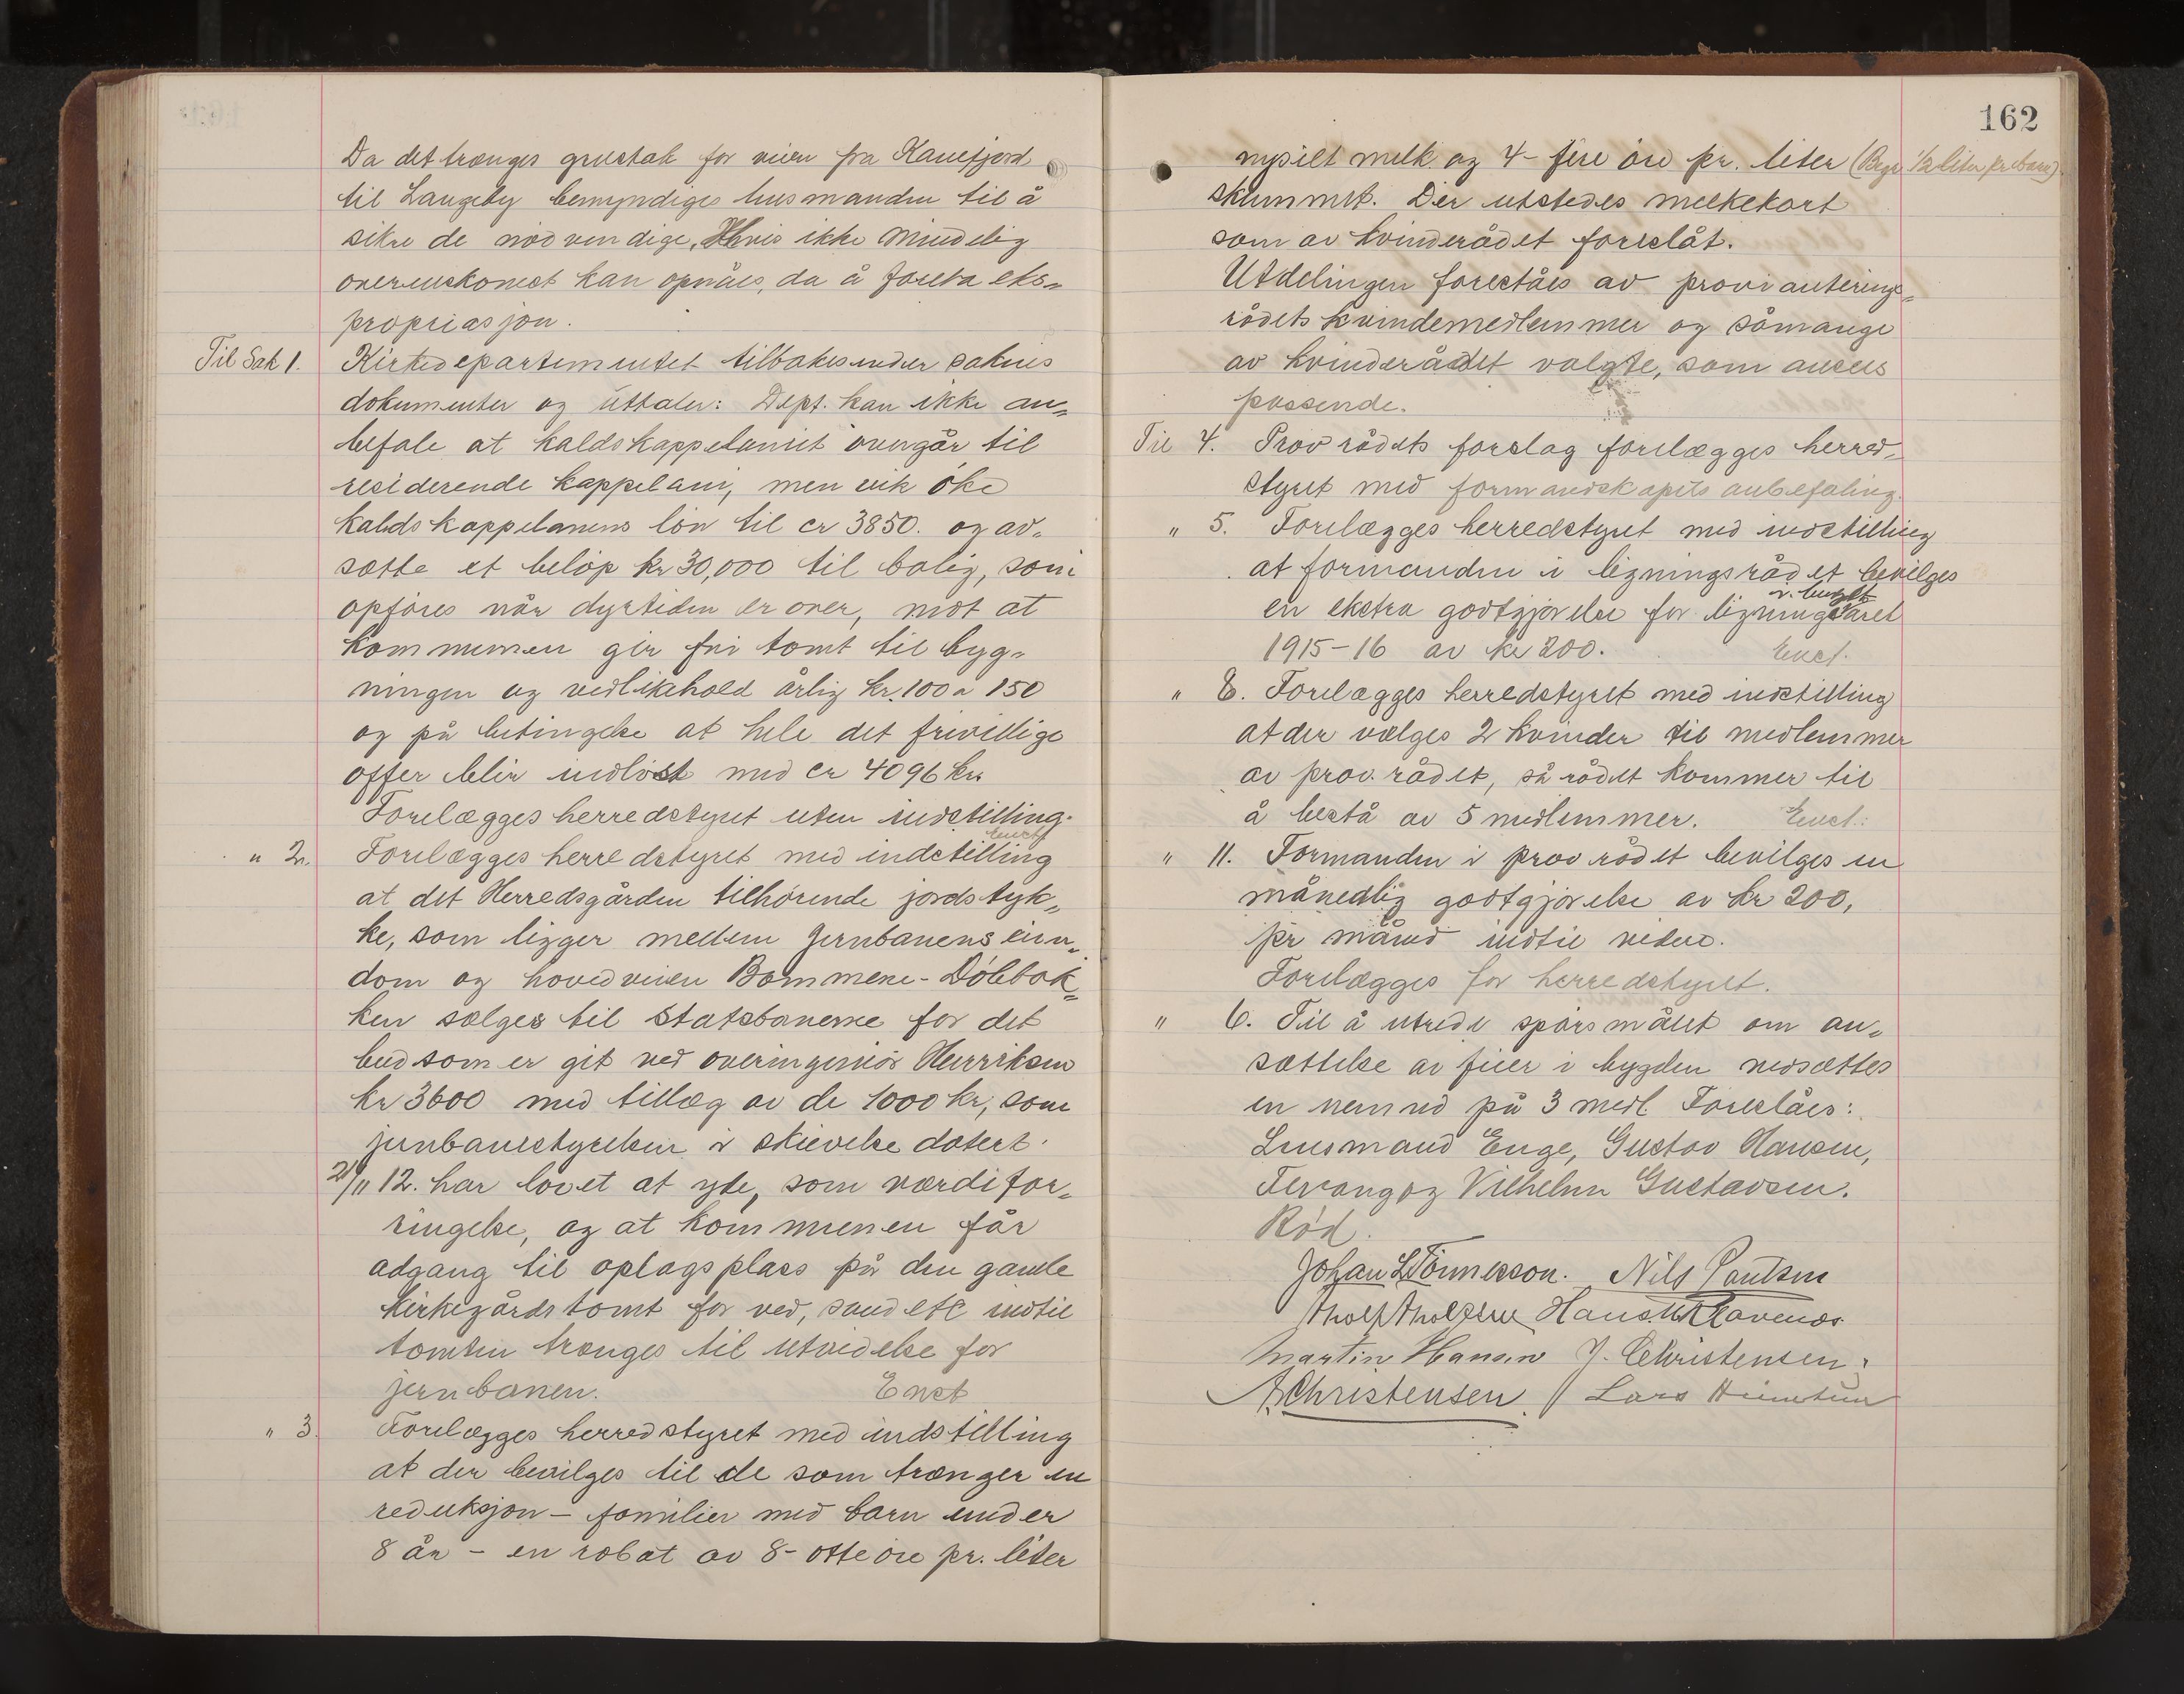 Da det trænges grustak for veien fra Kanefjord
til Langeby bemyndiges lensmanden til å
sikre de nødvendige. Hvis ikke mindelig
overenskomst kan opnåes, da å foreta eks-
propriasjon.
Til Sak 1. Kirkedepartementet tilbakesender sakens
dokumenter og uttaler: Dept. kan ikke an-
befale at kaldskappelaniet overgår til
residerende kappelani, men vil øke
kaldskappelanens løn til cr 3850. og av-
sætte et beløp kr 30,000 til bolig, som
opføres når dyrtiden er over, mot at
kommunen gir fri tomt til byg-
ningen og vedlikehold årlig kr. 100 a 150
og på betingelse at hele det frivillige
offer blir indløst med cr 4096 kr.
Forelægges herredstyret uten indstilling.
Enst.
" 2. Forelægges herredstyret med indstilling
at det Herredsgården tilhørende jordstyk-
ke, som ligger mellem jernbanens eien-
dom og hovedveien Bommene-Dölebak-
ken sælges til Statsbanerne for det
bud som er git ved overingeniør Henriksen
kr 3600 med tillæg av de 1000 kr, som
jernbanestyrelsen i skrivelse datert
21/11 12. har lovet at yde, som værdifor-
ringelse, og at kommunen får
adgang til oplagsplass på den gamle
kirkegårdstomt for ved, sand etc indtil
tomten trænges til utvidelse for
jernbanen. Enst
" 3. Forelægges herredstyret med indstilling
at der bevilges til de som trænger en
reduksjon - familier med barn under
8 år - en rabat av 8- otte øre pr. liter
162
nysilt melk og 4- fire øre pr. liter (Begr. 1/2 liter pr barn)
skummet. Der utstedes melkekort
som av kvinderådet foreslåt.
Utdelingen foreståes av provianterings-
rådets kvindemedlemmer og såmange
av kvinderådet valgte, som ansees
passende.
Til 4. Prov rådets forslag forelægges herred-
styret med formandskapets anbefaling.
" 5. Forelægges herredstyret med indstilling
at formanden i ligningsrådet bevilges
en ekstra godtgjørelse for ligningsåret
1915-16 av kr 200. Enst.
" 8. Forelægges herredstyret med indstilling
at der vælges 2 kvinder til medlemmer
av prov. rådet, så rådet kommer til
å bestå av 5 medlemmer. Enst.:
" 11. Formanden i prov rådet bevilges en
månedlig godtgjørelse av kr 200,
pr måned indtil videre.
Forelægges for herredstyret.
" 6. Til å utrede spørsmålet om an-
sættelse av feier i bygden nedsættes
en nemnd på 3 medl. Foreslåes:
Lensmand Enge, Gustav Hansen,
Tevang og Vilhelm Gustavsen.
Rød.
Johan L Tönnesson. Nils Paulsen
Tholf Tholfsen Hans
Martin Hansen J. Christensen
A. Christensen Lars